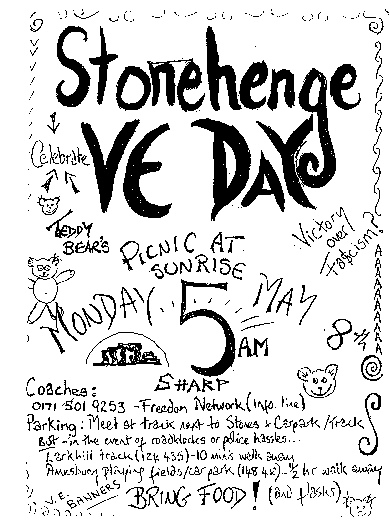 Stonehenge
VE DAY
Celebrate
TEDDY
BEAR'S
PICNIC AT
SUNRISE
Victory
over
Fascism?
MONDAY... 5 AM MAY 8th
SHARP
Coaches:
0171 501 9253 - Freedom Network (info. line)
Parking: Meet at track next to Stones & Carpark/Track
BUT - in the event of roadblocks or police hassles...
Larkhill track (124 435) - 10 mins walk away
Amesbury playing fields/car park (148 42) - 1/2 hr walk away
V.E. BANNERS
BRING FOOD! (and flasks)